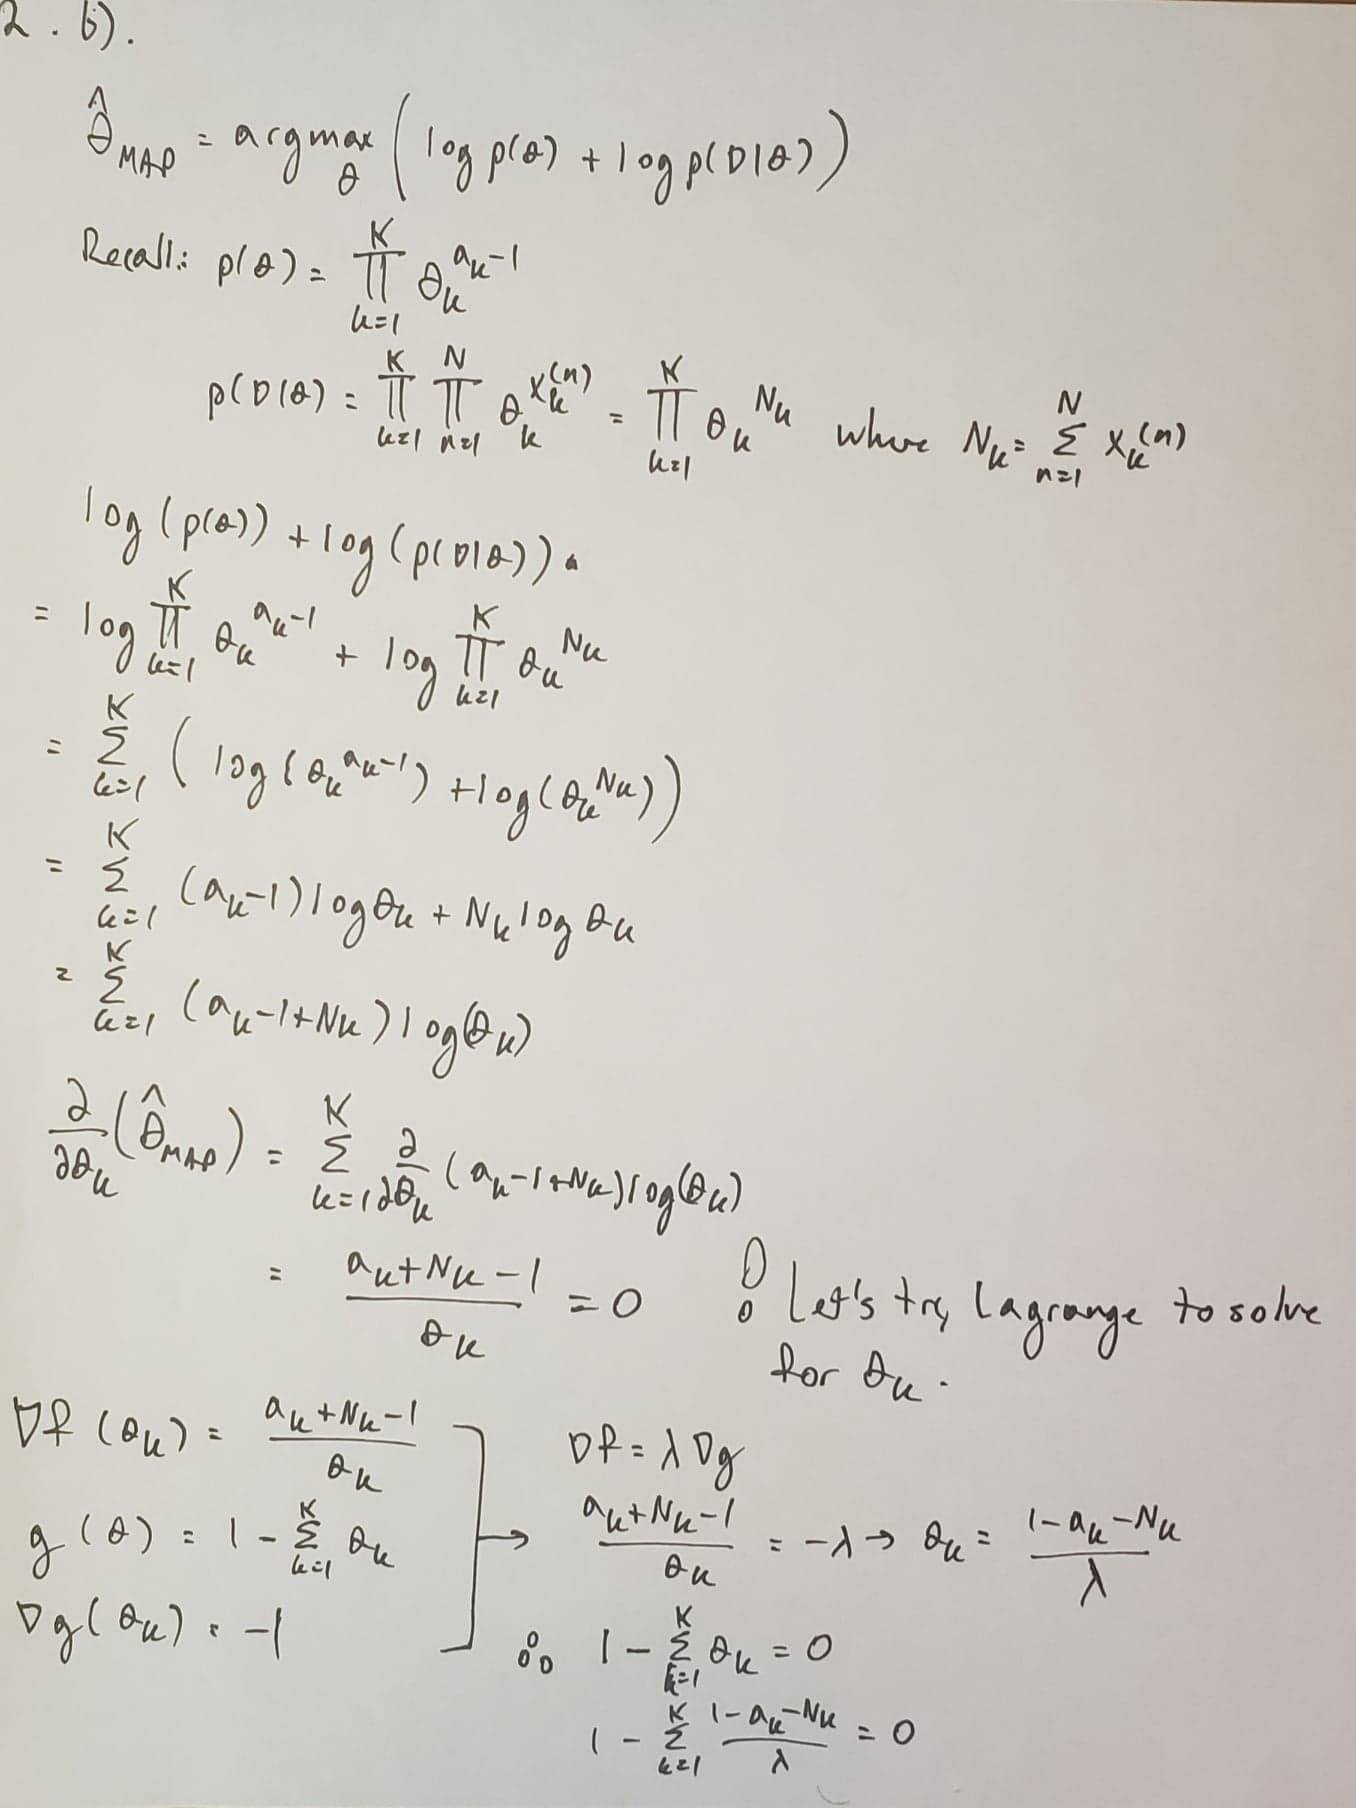 2. b).
θ̂_MAP = argmax_θ ( log p(θ) + log p(D|θ) )
Recall: p(θ) = ∏_{k=1}^{K} θ_k^{a_k-1}
p(D|θ) = ∏_{k=1}^{K} ∏_{n=1}^{N} θ_k^{x_k^{(n)}} = ∏_{k=1}^{K} θ_k^{N_k} where N_k = Σ_{n=1}^{N} x_k^{(n)}
log(p(θ)) + log(p(D|θ)).
= log ∏_{k=1}^{K} θ_k^{a_k-1} + log ∏_{k=1}^{K} θ_k^{N_k}
= Σ_{k=1}^{K} ( log(θ_k^{a_k-1}) + log(θ_k^{N_k}) )
= Σ_{k=1}^{K} (a_k-1) log θ_k + N_k log θ_k
= Σ_{k=1}^{K} (a_k-1+N_k) log(θ_k)
∂/∂θ_k (θ̂_MAP) = Σ_{k=1}^{K} ∂/∂θ_k (a_k-1+N_k) log(θ_k)
= (a_k+N_k-1)/θ_k = 0 ! Let's try Lagrange to solve
for θ_k.
∇f(θ_k) = (a_k+N_k-1)/θ_k
g(θ) = 1 - Σ_{k=1}^{K} θ_k
∇g(θ_k) = -1
→
∇f = λ∇g
(a_k+N_k-1)/θ_k = -λ → θ_k = (1-a_k-N_k)/λ
∴ 1 - Σ_{k=1}^{K} θ_k = 0
1 - Σ_{k=1}^{K} (1-a_k-N_k)/λ = 0